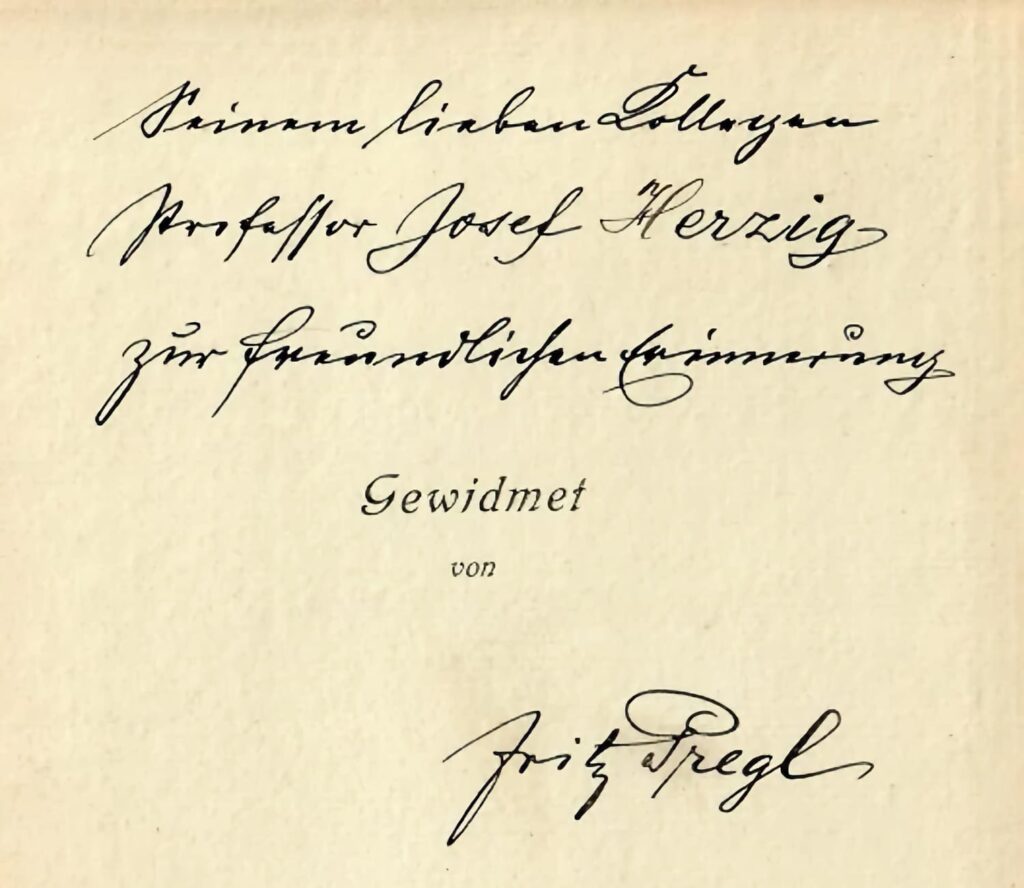 Seinem lieben Kollegen
Professor Josef Herzig
zur freundlichen Erinnerung
Gewidmet
von
Fritz Pregl